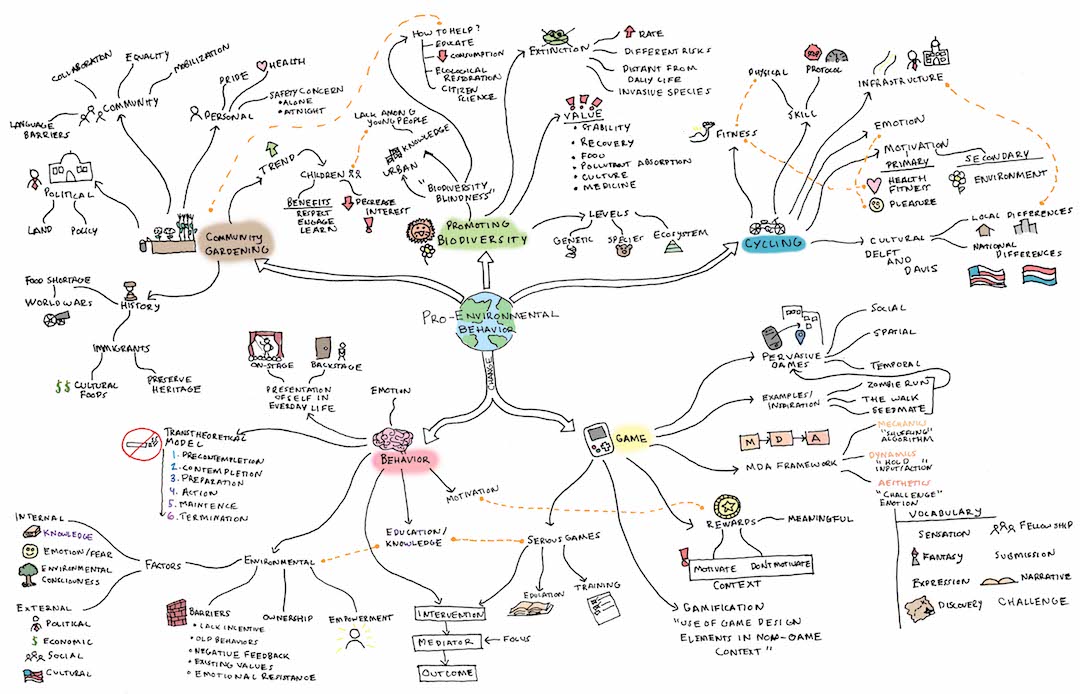 PRO-ENVIRONMENTAL
BEHAVIOR
CHANGE
COMMUNITY
GARDENING
COMMUNITY
COLLABORATION
EQUALITY
MOBILIZATION
LANGUAGE
BARRIERS
PERSONAL
PRIDE
HEALTH
SAFETY CONCERN
• ALONE
• AT NIGHT
POLITICAL
LAND
POLICY
TREND
CHILDREN
BENEFITS
RESPECT
ENGAGE
LEARN
DECREASE
INTEREST
HISTORY
FOOD SHORTAGE
WORLD WARS
IMMIGRANTS
$$ CULTURAL
FOODS
PRESERVE
HERITAGE
PROMOTING
BIODIVERSITY
HOW TO HELP?
EDUCATE
CONSUMPTION
ECOLOGICAL
RESTORATION
CITIZEN
SCIENCE
LACK AMONG
YOUNG PEOPLE
KNOWLEDGE
URBAN
"BIODIVERSITY
BLINDNESS"
EXTINCTION
RATE
DIFFERENT RISKS
DISTANT FROM
DAILY LIFE
INVASIVE SPECIES
VALUE
• STABILITY
• RECOVERY
• FOOD
• POLLUTANT ABSORPTION
• CULTURE
• MEDICINE
LEVELS
GENETIC
SPECIES
ECOSYSTEM
CYCLING
FITNESS
SKILL
PHYSICAL
PROTOCOL
INFRASTRUCTURE
EMOTION
MOTIVATION
PRIMARY
HEALTH
FITNESS
PLEASURE
SECONDARY
ENVIRONMENT
CULTURAL
DELFT
AND
DAVIS
LOCAL DIFFERENCES
NATIONAL
DIFFERENCES
BEHAVIOR
EMOTION
ON-STAGE
BACKSTAGE
PRESENTATION
OF SELF IN
EVERYDAY LIFE
TRANSTHEORETICAL
MODEL
1. PRECONTEMPLETION
2. CONTEMPLETION
3. PREPARATION
4. ACTION
5. MAINTENCE
6. TERMINATION
MOTIVATION
EDUCATION/
KNOWLEDGE
ENVIRONMENTAL
FACTORS
INTERNAL
KNOWLEDGE
EMOTION/FEAR
ENVIRONMENTAL
CONSCIOWNESS
EXTERNAL
POLITICAL
$ ECONOMIC
SOCIAL
CULTURAL
BARRIERS
• LACK INCENTIVE
• OLD BEHAVIORS
• NEGATIVE FEEDBACK
• EXISTING VALUES
• EMOTIONAL RESISTANCE
OWNERSHIP
EMPOWERMENT
INTERVENTION
MEDIATOR
FOCUS
OUTCOME
GAME
PERVASIVE
GAMES
SOCIAL
SPATIAL
TEMPORAL
EXAMPLES/
INSPIRATION
ZOMBIE RUN
THE WALK
SEEDMATE
M D A
MDA FRAMEWORK
MECHANICS
"SHUFFLING"
ALGORITHM
DYNAMICS
"HOLD"
INPUT/ACTION
AETHETICS
"CHALLENGE"
EMOTION
VOCABULARY
SENSATION
FELLOWSHIP
FANTASY
SUBMISSION
EXPRESSION
NARRATIVE
DISCOVERY
CHALLENGE
REWARDS
MEANINGFUL
MOTIVATE
DON'T MOTIVATE
CONTEXT
SERIOUS GAMES
EDUCATION
TRAINING
GAMIFICATION
"USE OF GAME DESIGN
ELEMENTS IN NON-GAME
CONTEXT"